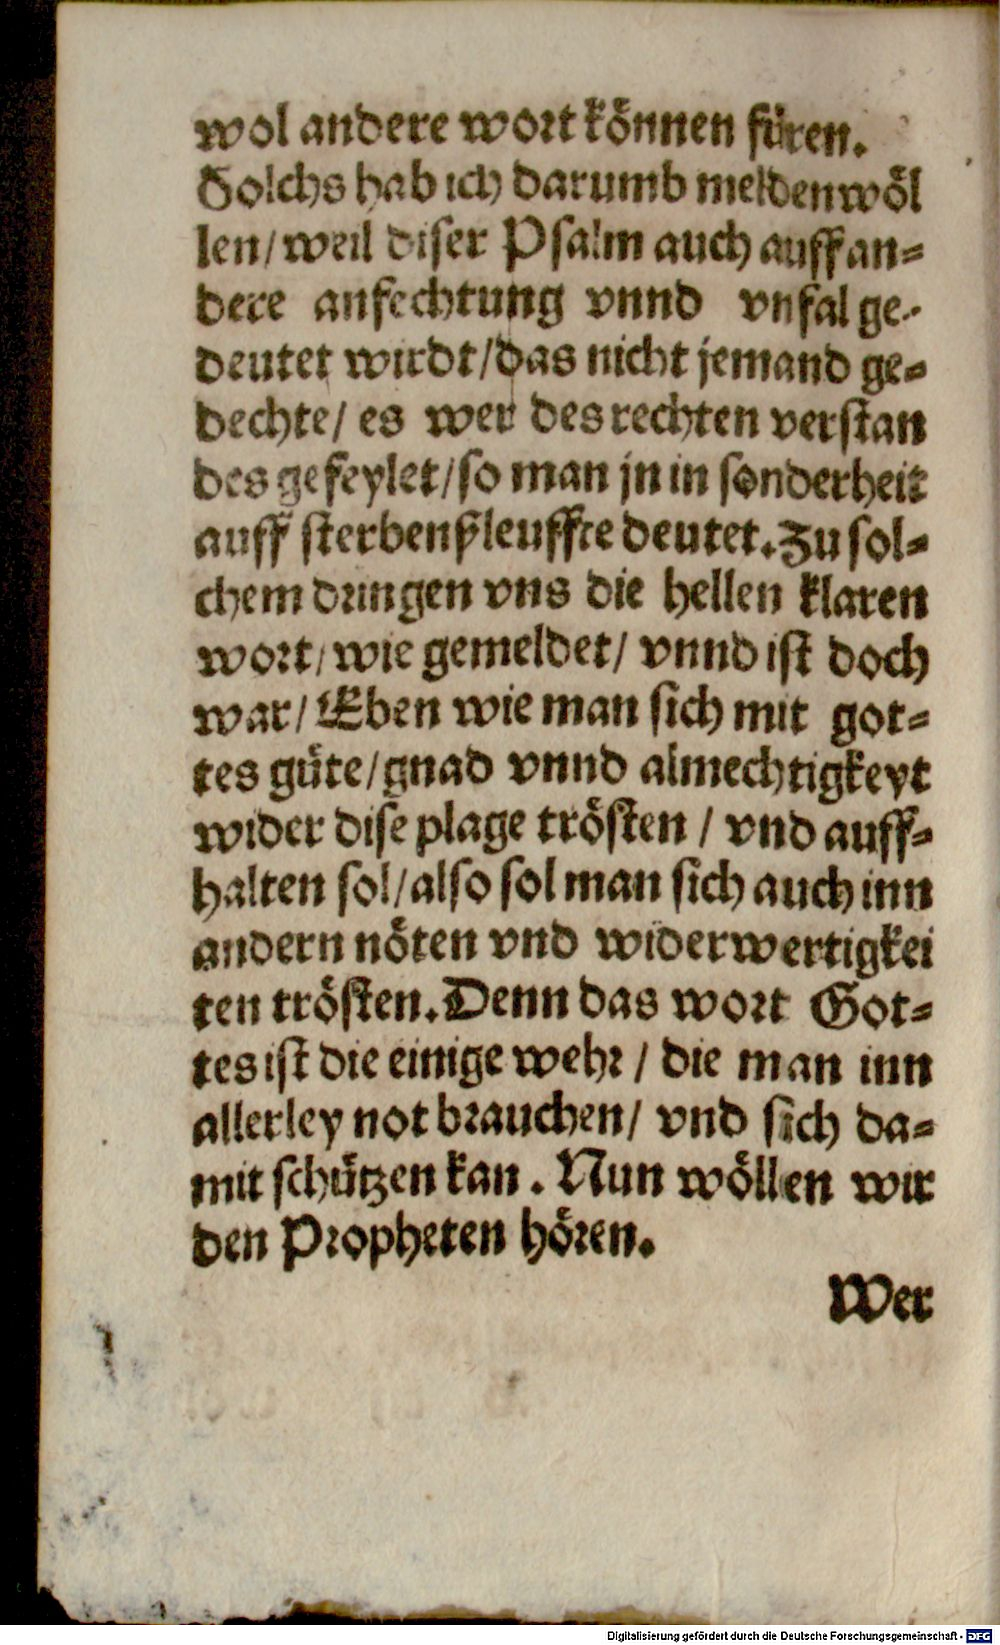 wol andere wort können füren.
Solchs hab ich darumb melden wöl
len/ weil diser Psalm auch auff an-
dere anfechtung vnnd vnfal ge-
deutet wirdt/ das nicht jemand ge-
dechte/ es wer des rechten verstan
des gefeylet/ so man jn in sonderheit
auff sterbenßleuffte deutet. Zu sol-
chem dringen vns die hellen klaren
wort/ wie gemeldet/ vnnd ist doch
war/ Eben wie man sich mit got-
tes güte/ gnad vnnd almechtigkeyt
wider dise plage trösten / vnd auff-
halten sol/ also sol man sich auch inn
andern nöten vnd widerwertigkei
ten trösten. Denn das wort Got-
tes ist die einige wehr / die man inn
allerley not brauchen/ vnd sich da-
mit schützen kan. Nun wöllen wir
den Propheten hören.
Wer
Digitalisierung gefördert durch die Deutsche Forschungsgemeinschaft - DFG